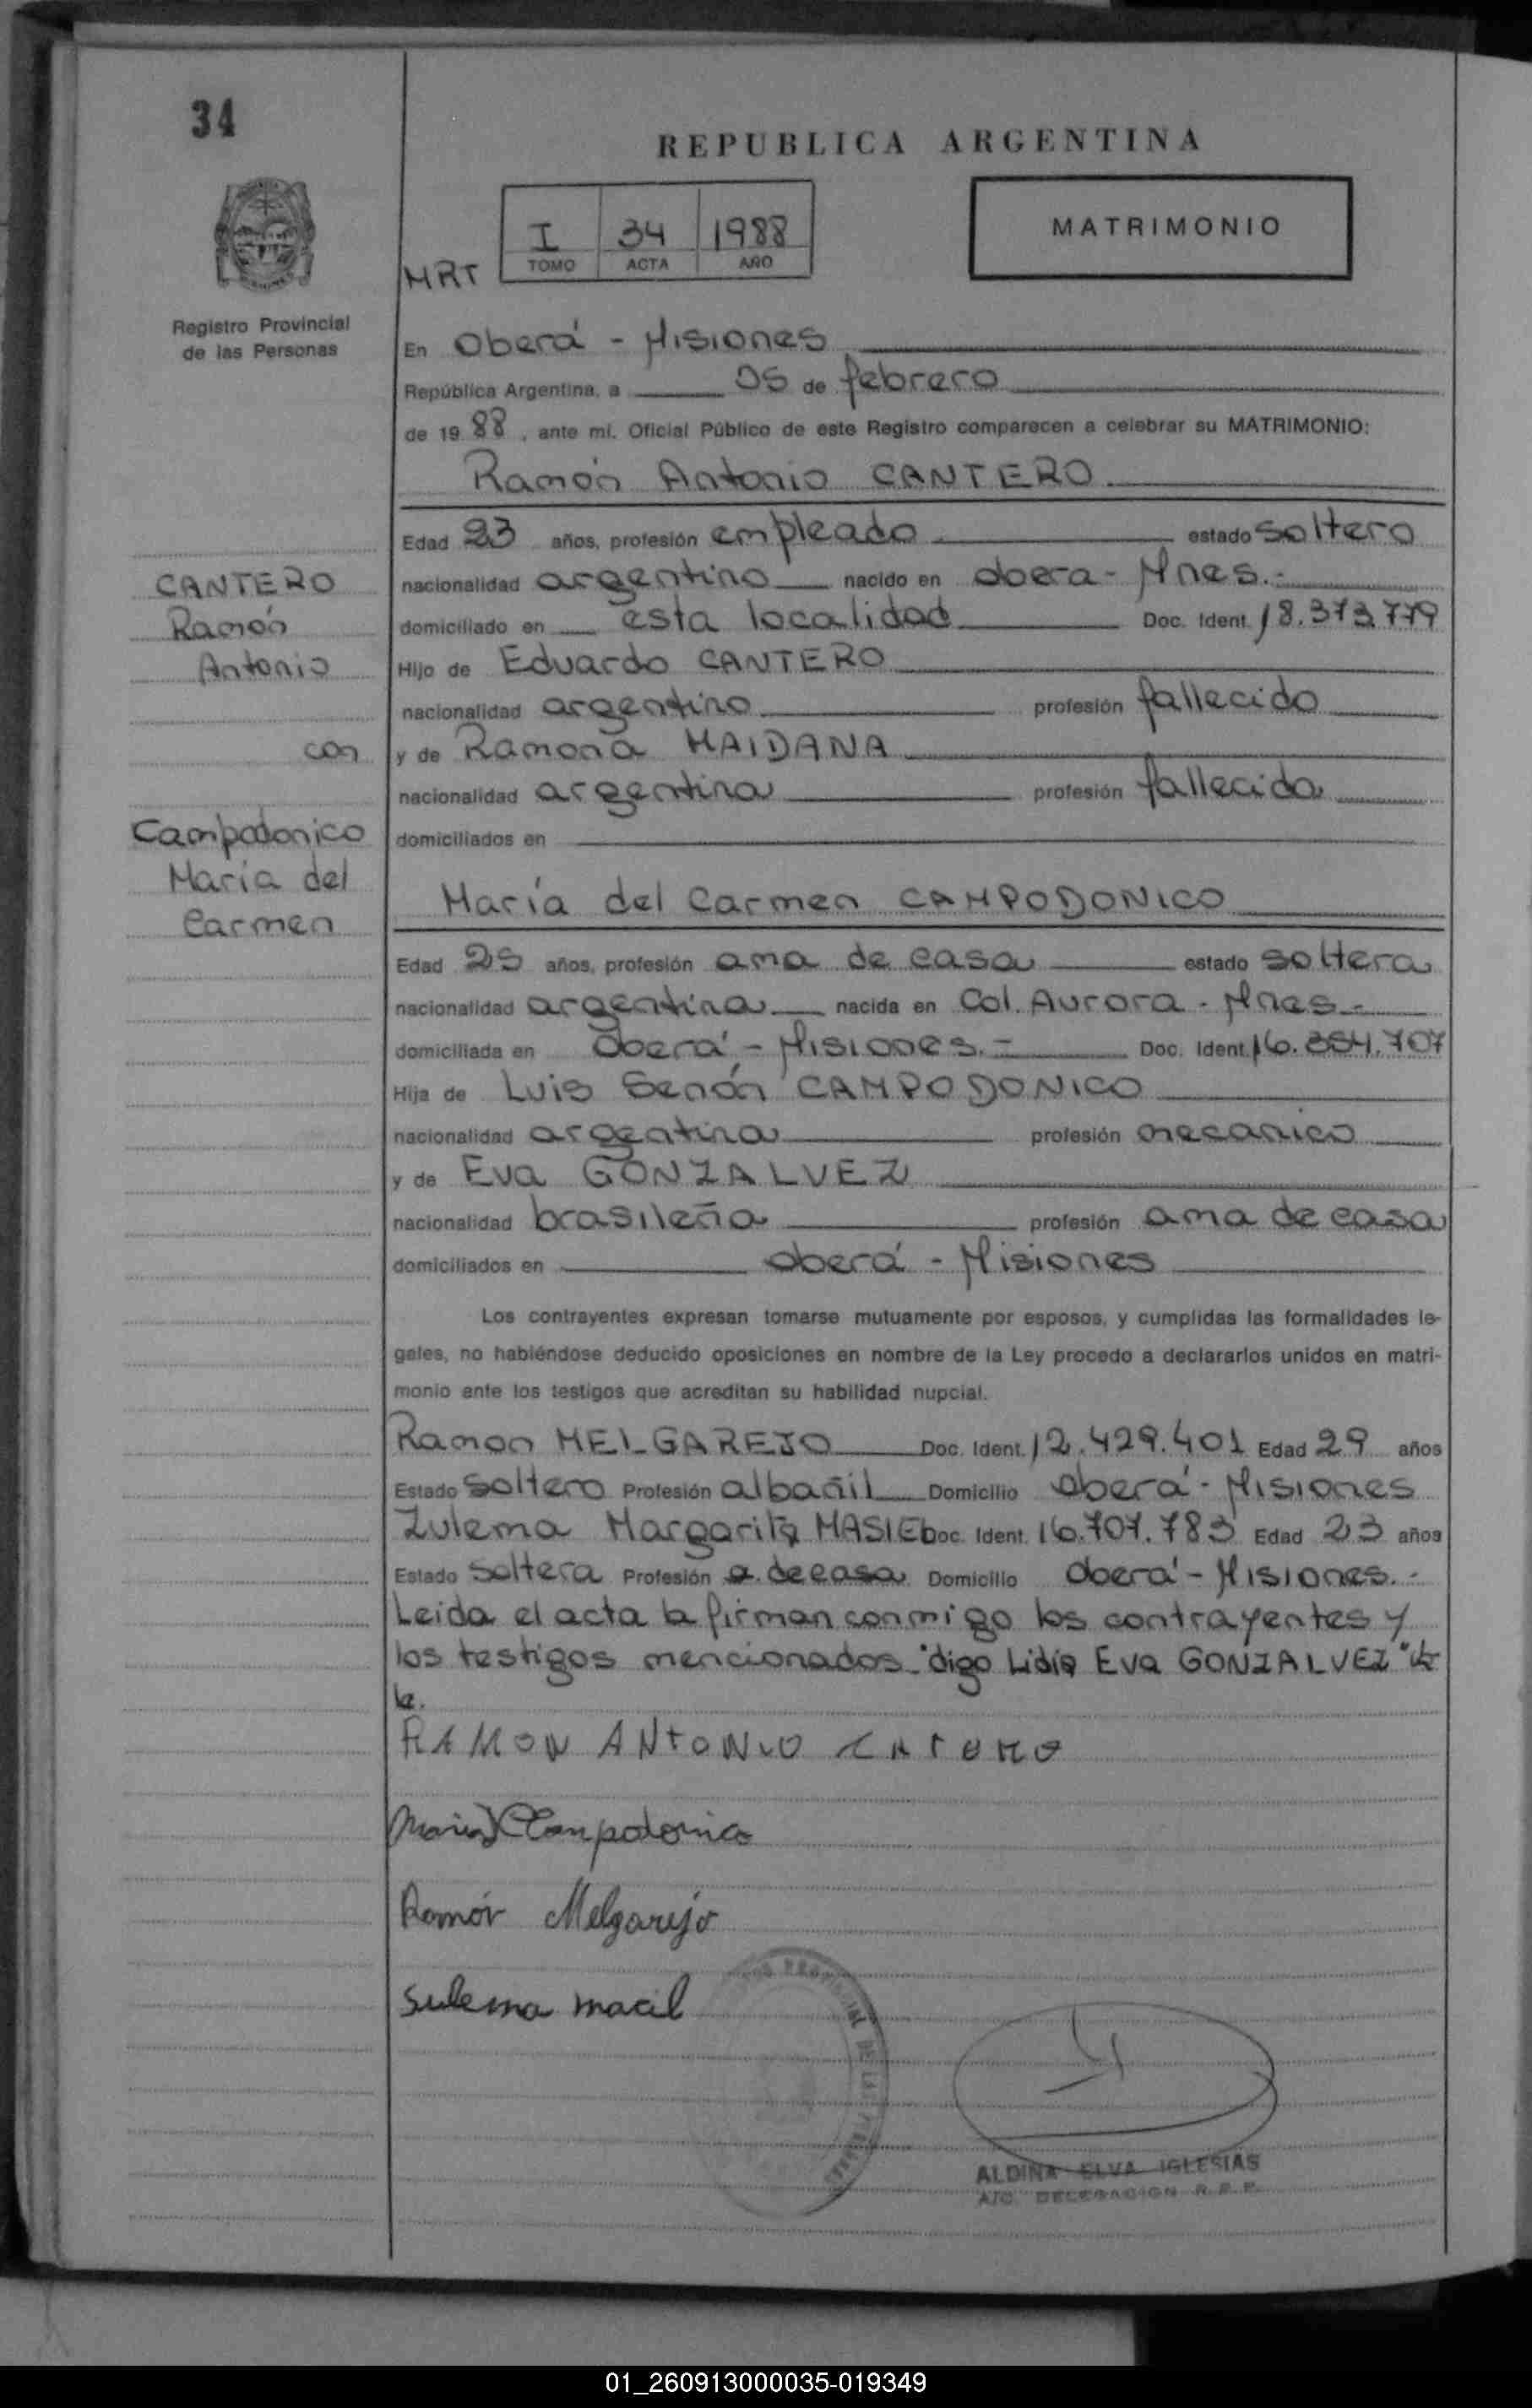 34
REPUBLICA ARGENTINA
I 34 1988
TOMO ACTA AÑO
MATRIMONIO
MRT
Registro Provincial
de las Personas
En Oberá - Misiones
República Argentina, a 05 de febrero
de 19 88, ante mí, Oficial Público de este Registro comparecen a celebrar su MATRIMONIO:
Ramón Antonio CANTERO
Edad 23 años, profesión empleado estado soltero
CANTERO
nacionalidad argentino nacido en obera - Mnes.-
Ramón
domiciliado en esta localidad Doc. Ident. 18.373.779
Antonio
Hijo de Eduardo CANTERO
nacionalidad argentino profesión fallecido
con
y de Ramona MAIDANA
nacionalidad argentina profesión fallecida
Campodonico
domiciliados en
María del
Carmen
María del Carmen CAMPODONICO
Edad 25 años, profesión ama de casa estado soltera
nacionalidad argentina nacida en Col. Aurora - Mnes -
domiciliada en Oberá - Misiones.- Doc. Ident. 16.354.707
Hija de Luis Senón CAMPODONICO
nacionalidad argentina profesión mecanico
y de Eva GONZALVEZ
nacionalidad brasileña profesión ama de casa
domiciliados en oberá - Misiones
Los contrayentes expresan tomarse mutuamente por esposos, y cumplidas las formalidades le-
gales, no habiéndose deducido oposiciones en nombre de la Ley procedo a declararlos unidos en matri-
monio ante los testigos que acreditan su habilidad nupcial.
Ramon MELGAREJO Doc. Ident. 12.429.401 Edad 29 años
Estado soltero Profesión albañil Domicilio Oberá - Misiones
Zulema Margarita MASIEL Doc. Ident. 16.707.783 Edad 23 años
Estado soltera Profesión a. de casa Domicilio Oberá - Misiones.-
Leida el acta la firman conmigo los contrayentes y
los testigos mencionados "digo Lidia Eva GONZALVEZ"
RAMON ANTONIO
Maria Campodonico
Ramón Melgarejo
sulema macil
ALDINA ELVA IGLESIAS
A/C. DELEGACION R.P.P.
01_260913000035-019349